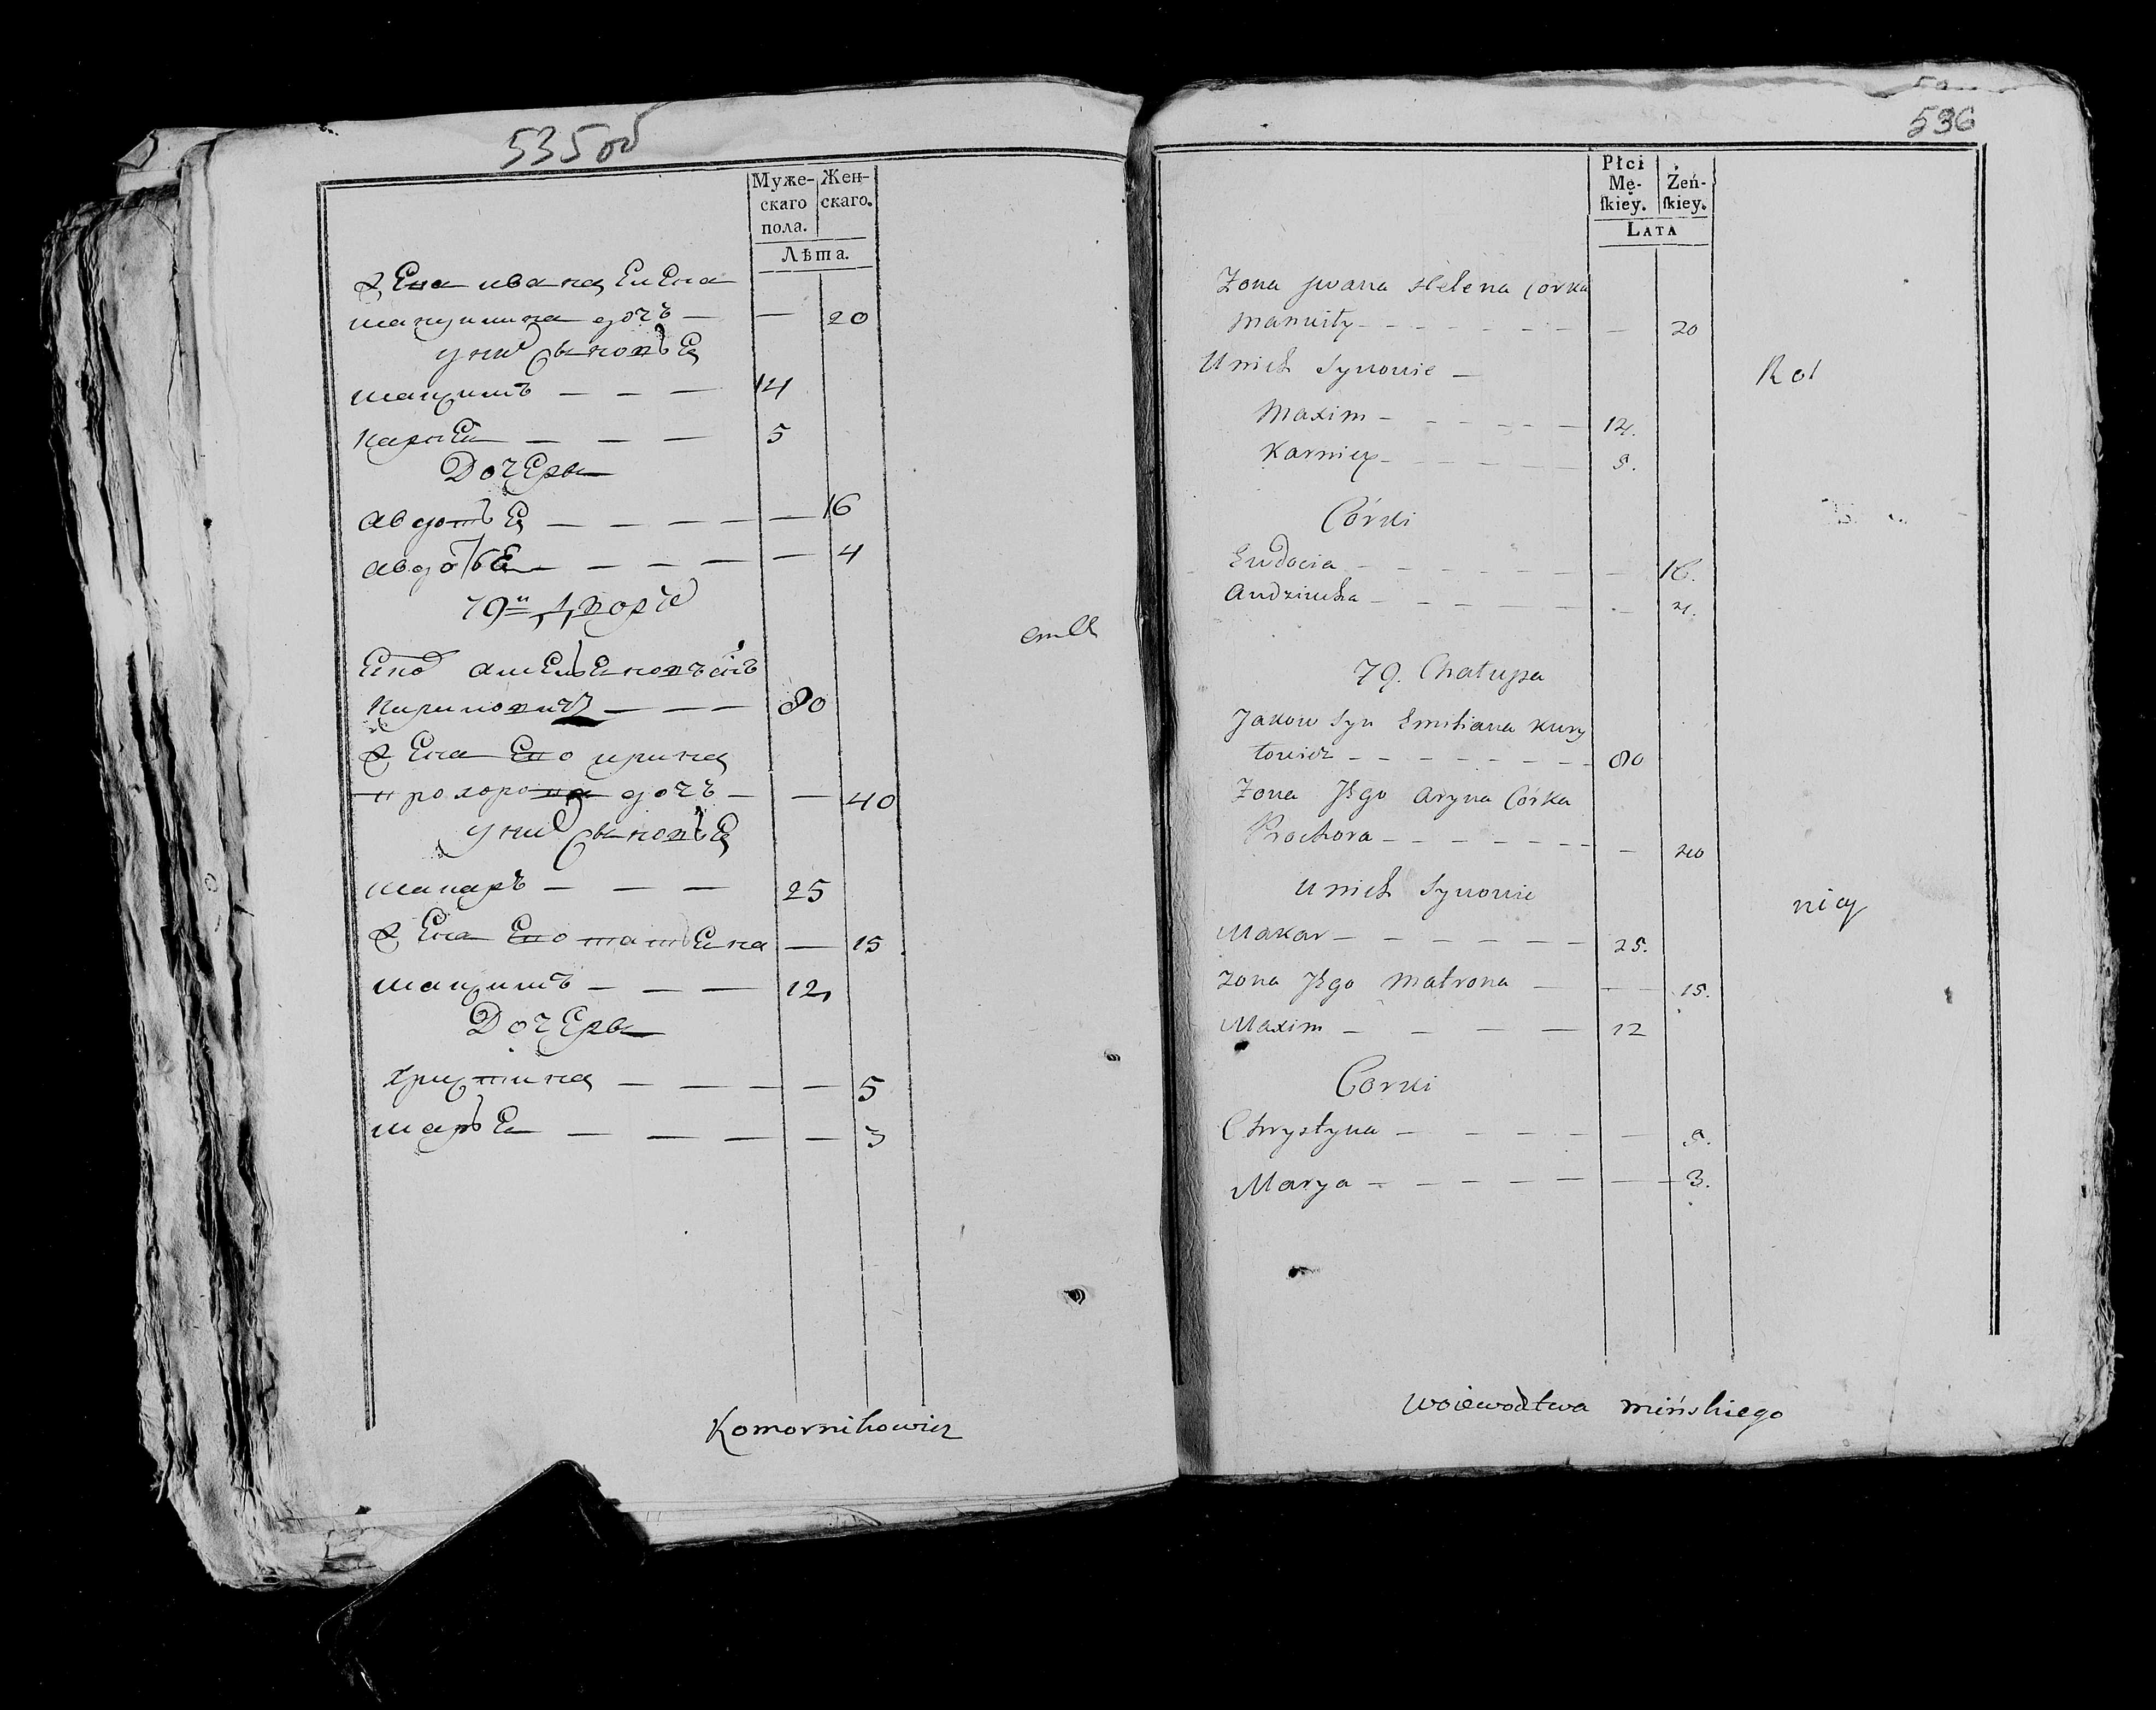 535 об
Муже- Жен-
скаго скаго.
пола.
Лѣта.
жена ивана Елена
мануилина дочь — — 20
у них сыновьЕ
максимъ — — — 14
карнЕй — — — 5
ДочЕры
авдотьЕ — — — — — 16
авдотьЕ — — — — — 4
79й двор
Яков амЕльЕновъ сынъ
Кириловичъ — — — 80
жЕна Его ирина
прохорова дочъ — — 40
у них сыновьЕ
макаръ — — — 25
жЕна Его матрЕна — 15
максимъ — — — 12
ДочЕры
христина — — — — 5
марьЕ — — — — 3
Komornikowicz
536
Płci
Mę- Żeń-
ſkiey. ſkiey.
LATA
Zona Jwana Helena Corka
Manuiły — — 20
U nich Synowie —
Rol
Maxim — 14.
Karniey — 5.
Córki
Eudocia — 16.
Audziucha — 4.
79. Chałupa
Jakow Syn Emiliana Kury
łowicz — 80
Zona Jego Aryna Córka
Prochora — — 40
U nich Synowie
nicy
Makar — 25.
Zona Jego Matrona — — 15.
Maxim — 12
Corki
Chrystyna — — 5.
Marya — — 3.
Woiewodztwa mińskiego